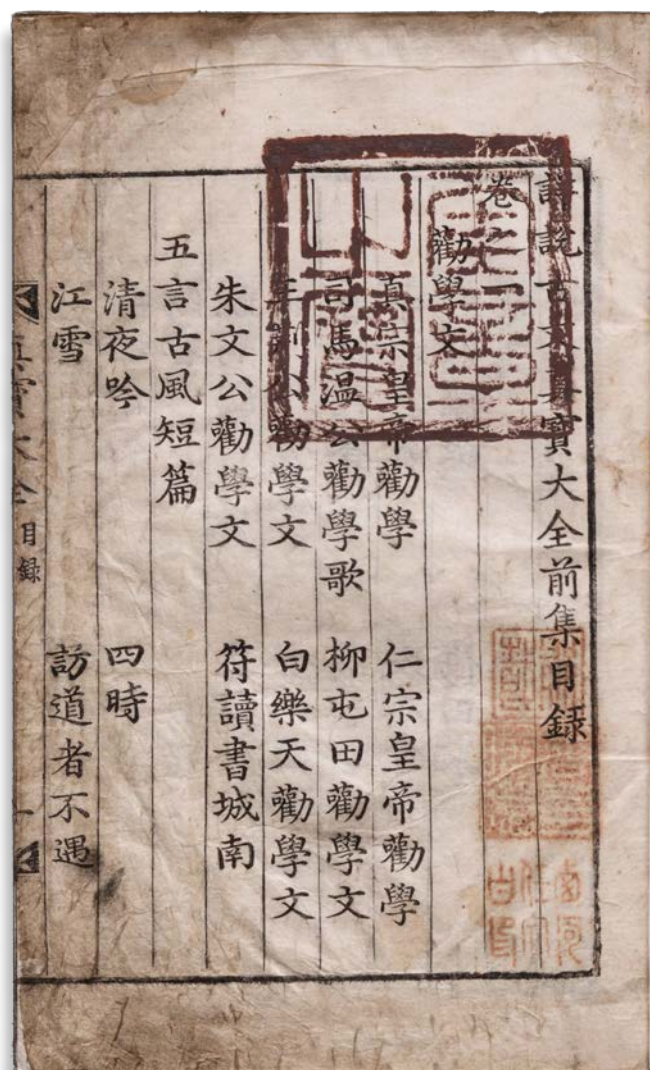 詳說古文真寶大全前集目録
卷之一
勸學文
真宗皇帝勸學 仁宗皇帝勸學
司馬温公勸學歌 柳屯田勸學文
王荊公勸學文 白樂天勸學文
朱文公勸學文 符讀書城南
五言古風短篇
清夜吟 四時
江雪 訪道者不遇
真寶大全 目録 一